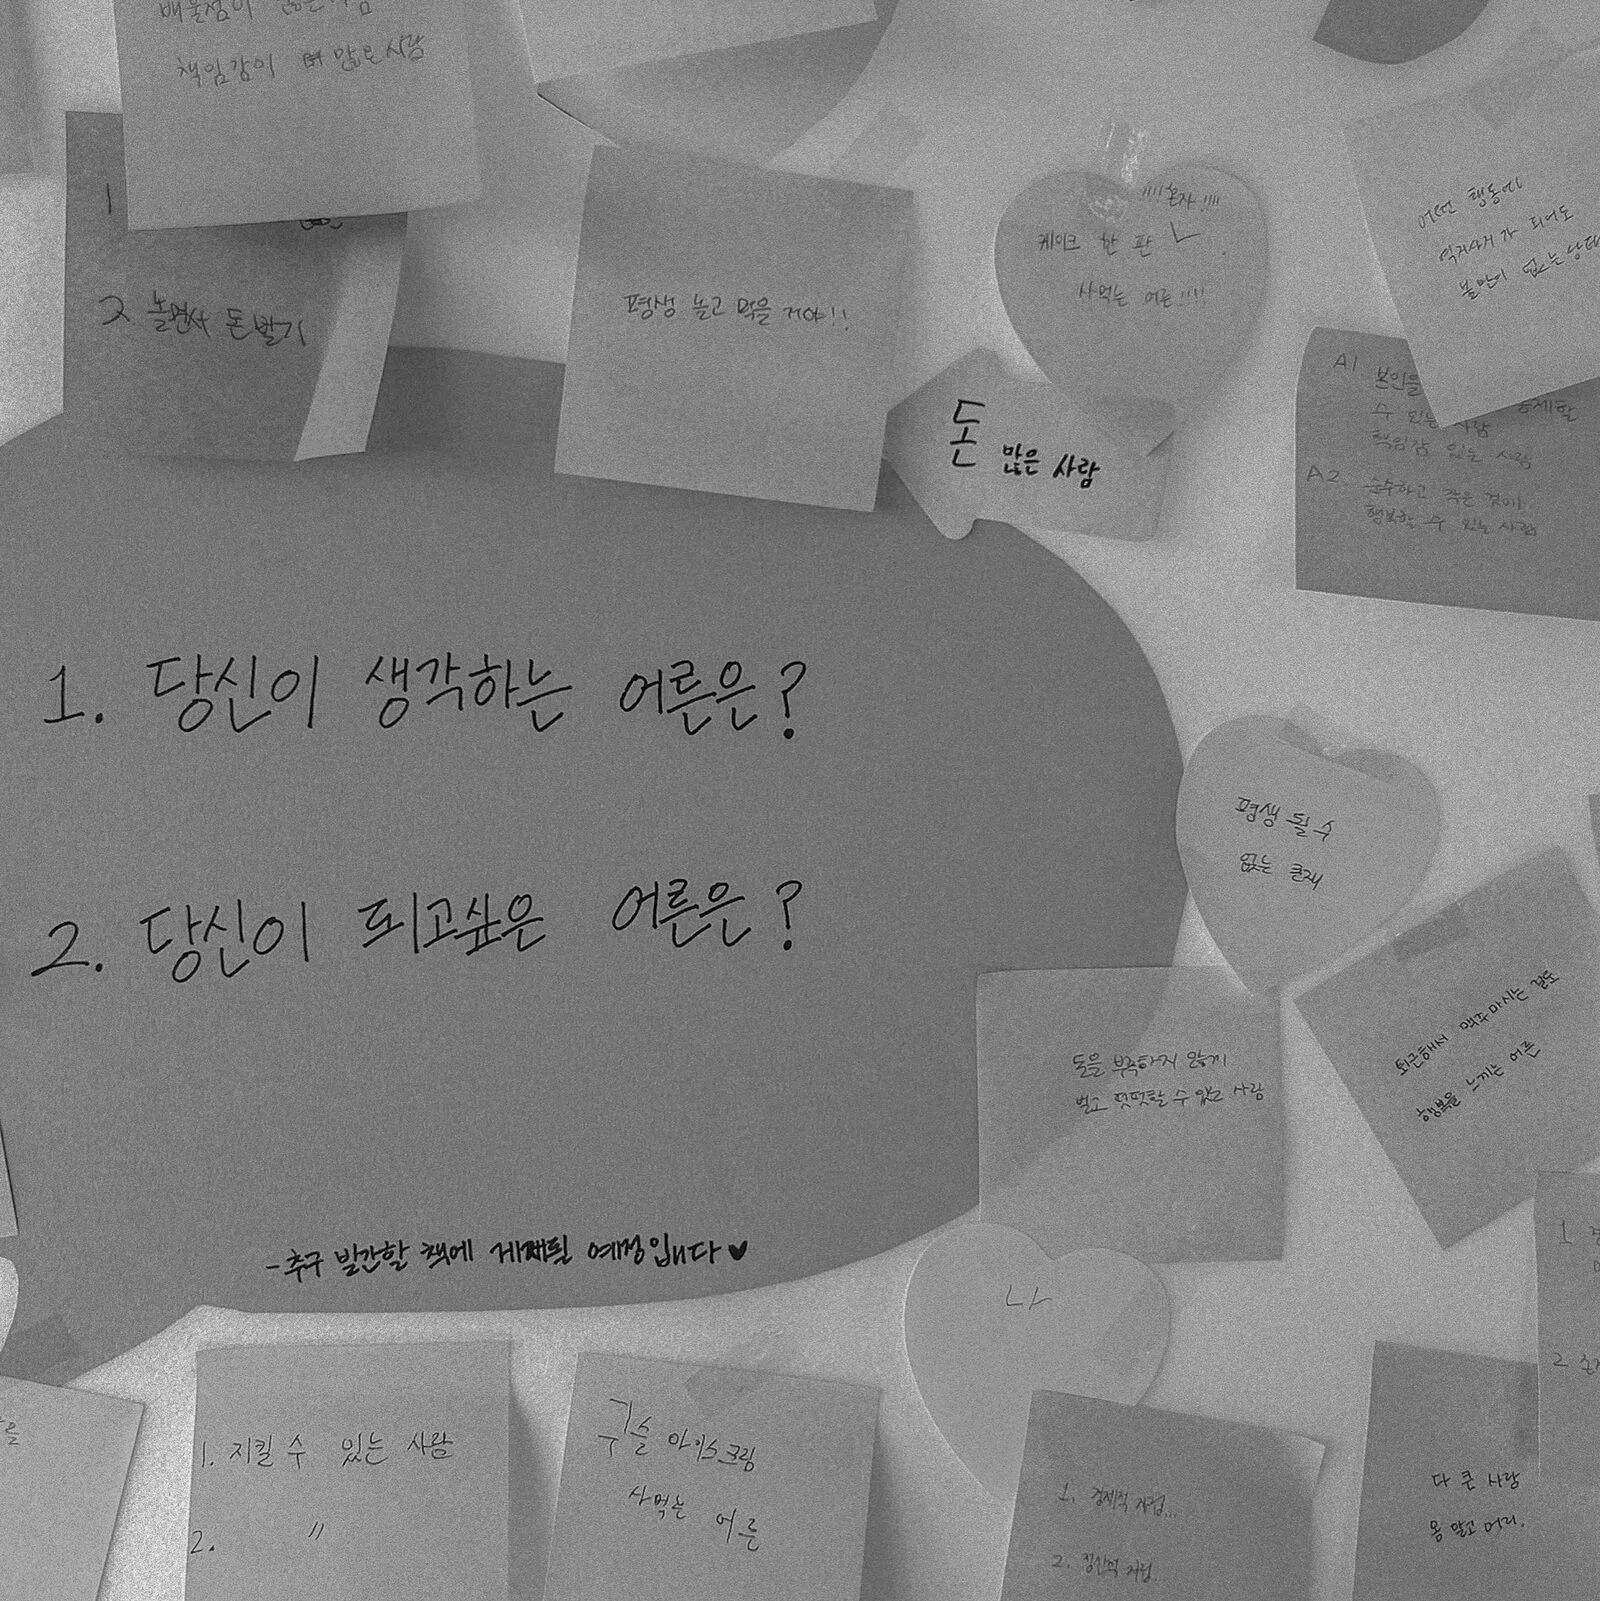 책임감이 더 많은 사람
1
2. 놀면서 돈 벌기
평생 놀고 먹을 거야!!
!!!! 혼자 !!!!
케이크 한 판
사먹는 어른!!!!
어떤 행동에
가 되어도
불만이 없는 상태
돈 많은 사람
A1 본인을 통제할
수 있는 사람
책임감 있는 사람
A2. 순수하고 작은 것에
행복할 수 있는 사람
1. 당신이 생각하는 어른은?
2. 당신이 되고싶은 어른은?
- 추구 발간할 책에 게재될 예정입니다 ♥
평생 될 수
없는 존재
돈을 부족하지 않게
벌고 떳떳할 수 있는 사람
퇴근해서 맥주 마시는 걸로
행복을 느끼는 어른
나
1
2.
을
1. 지킬 수 있는 사람
2. "
구슬 아이스크림
사먹는 어른
1. 경제적 자립...
2. 정신적 자립.
다 큰 사람
몸 말고 머리.